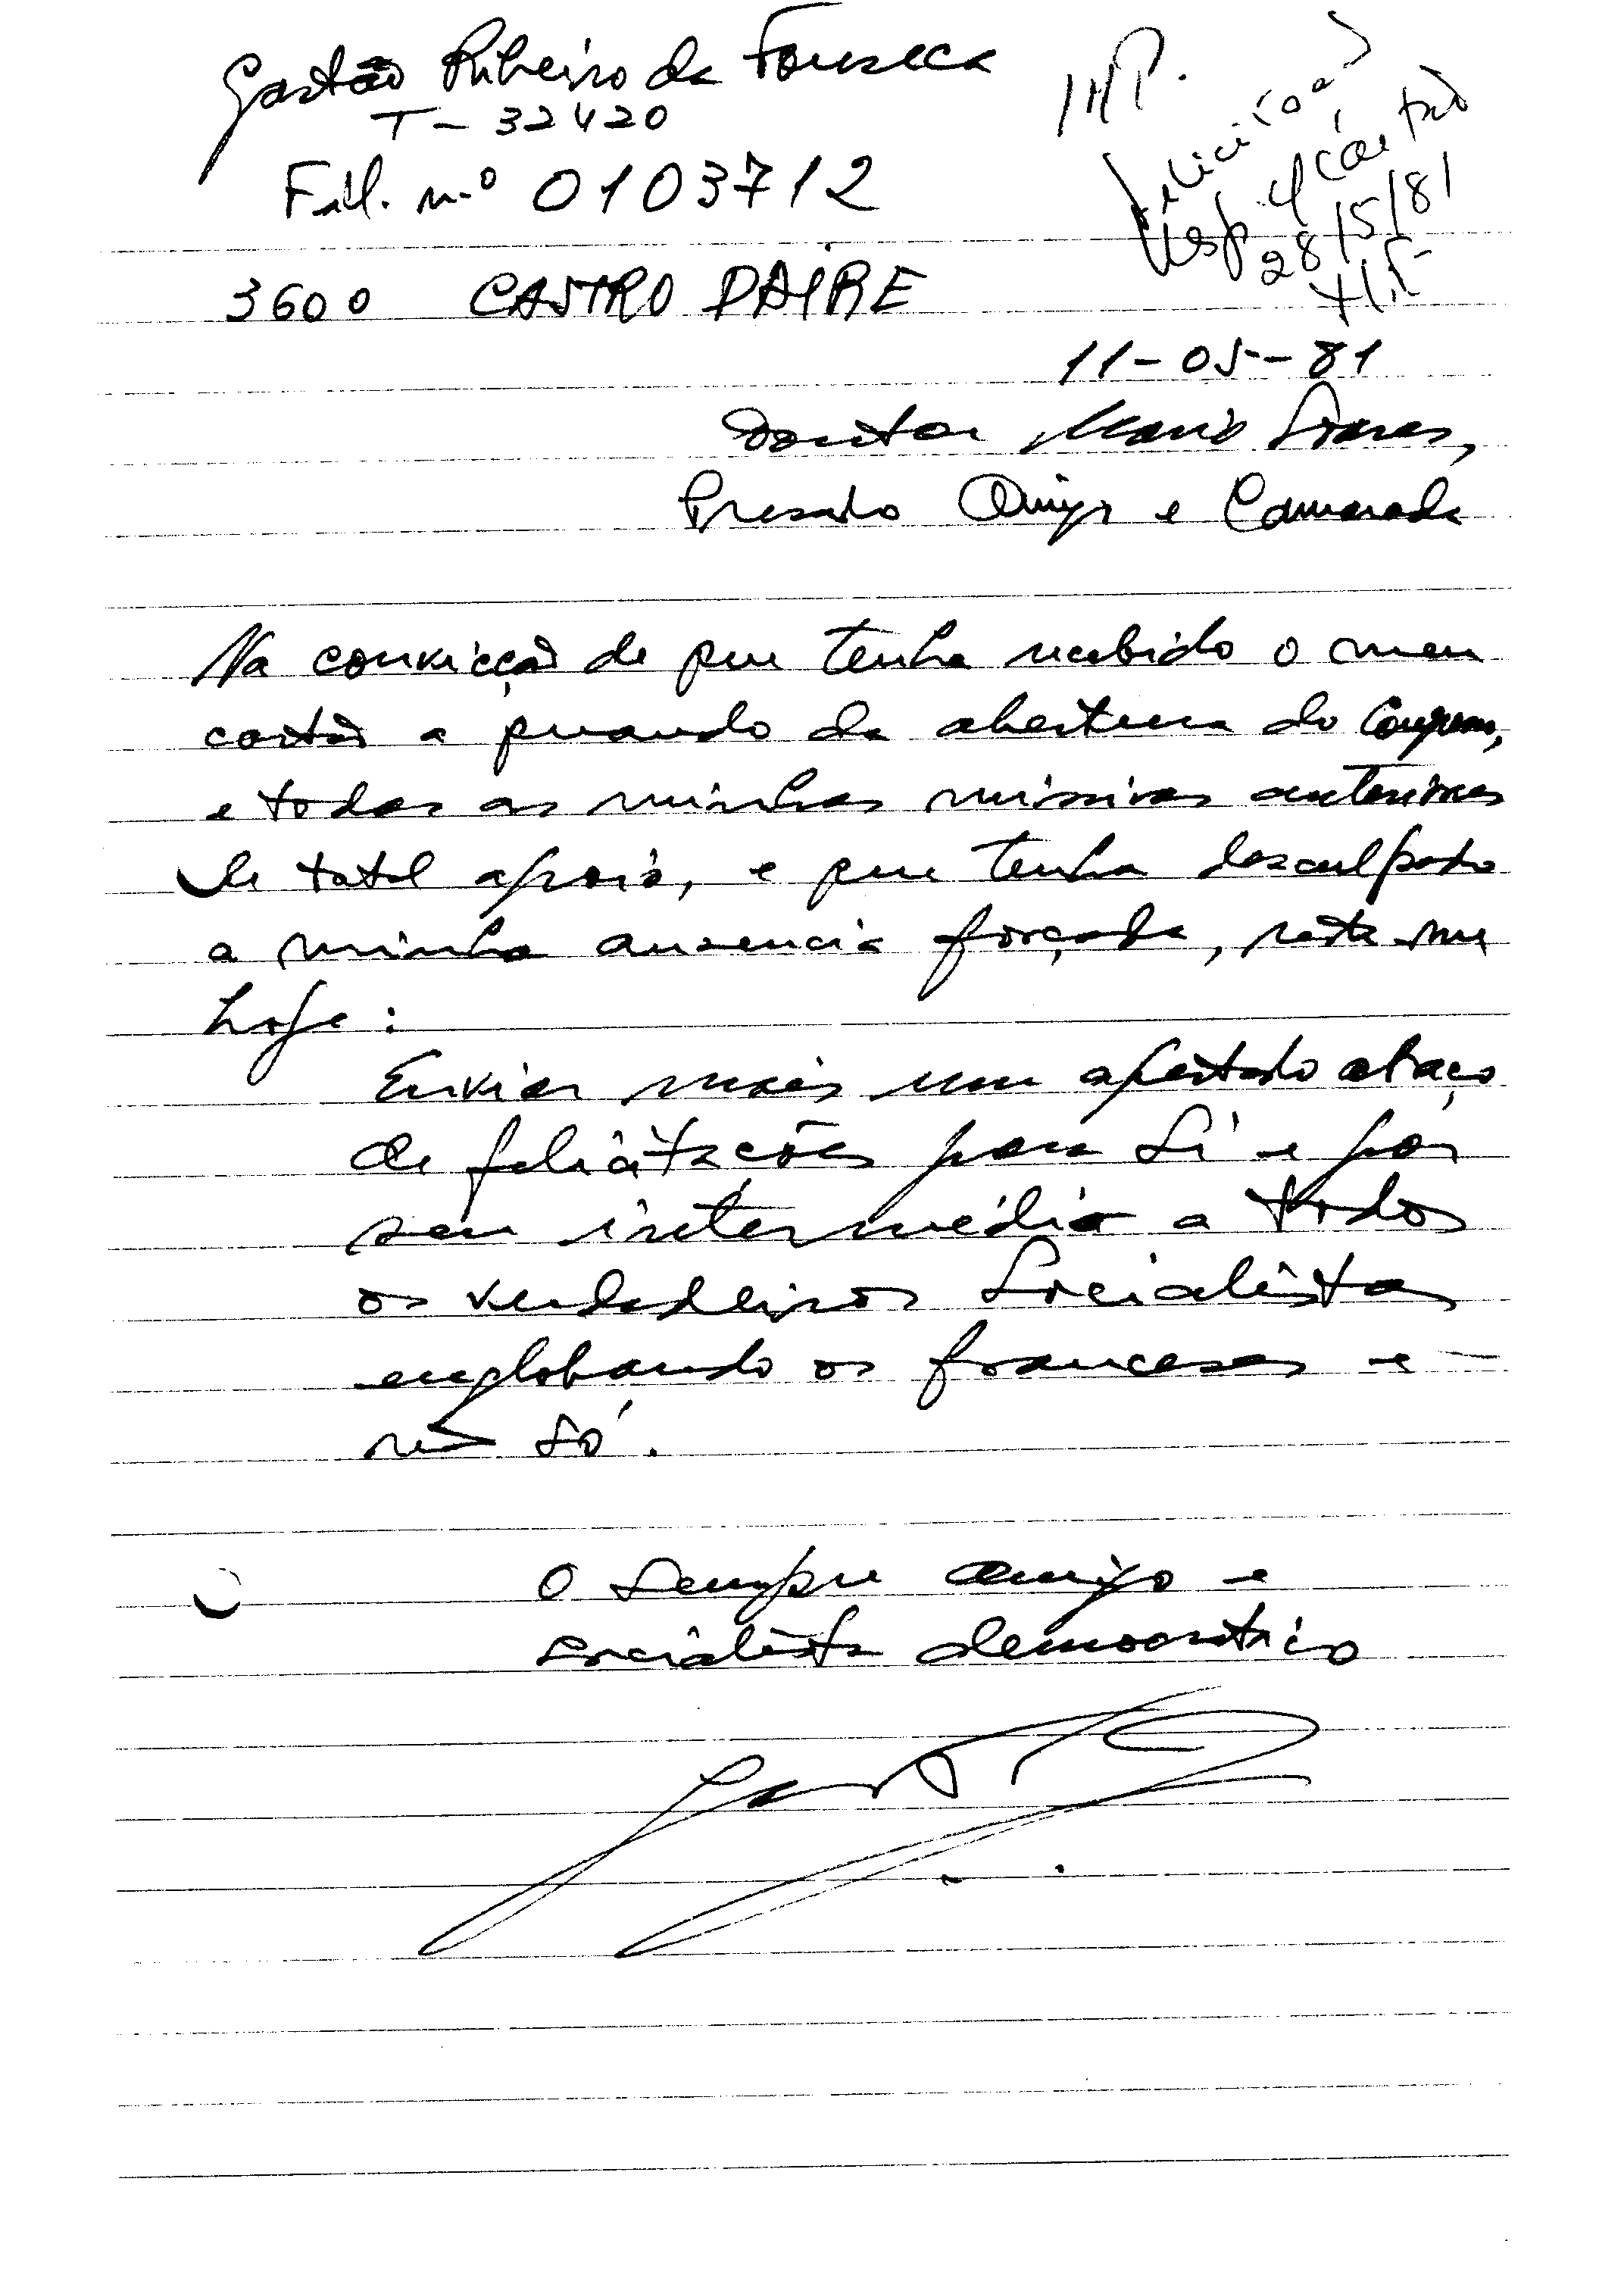 Gastão Ribeiro da Fonseca
T - 32420
Fil. n.º 0103712
3600 CASTRO DAIRE
Felicitações
Resp. c/ cartão
28/5/81
11-05-81
Doutor Mario Soares,
Presado Amigo e Camarada
Na convicção de que tenha recebido o meu
cartão a quando da abertura do Congresso,
e todas as minhas missivas anteriores
de total apoio, e que tenha desculpado
a minha ausencia forçada, resta-me
hoje:
Enviar mais um apertado abraço
de felicitações para Si e por
seu intermédio a todos
os verdadeiros Socialistas
englobando os franceses e
não só.
O sempre amigo e
socialista democratico